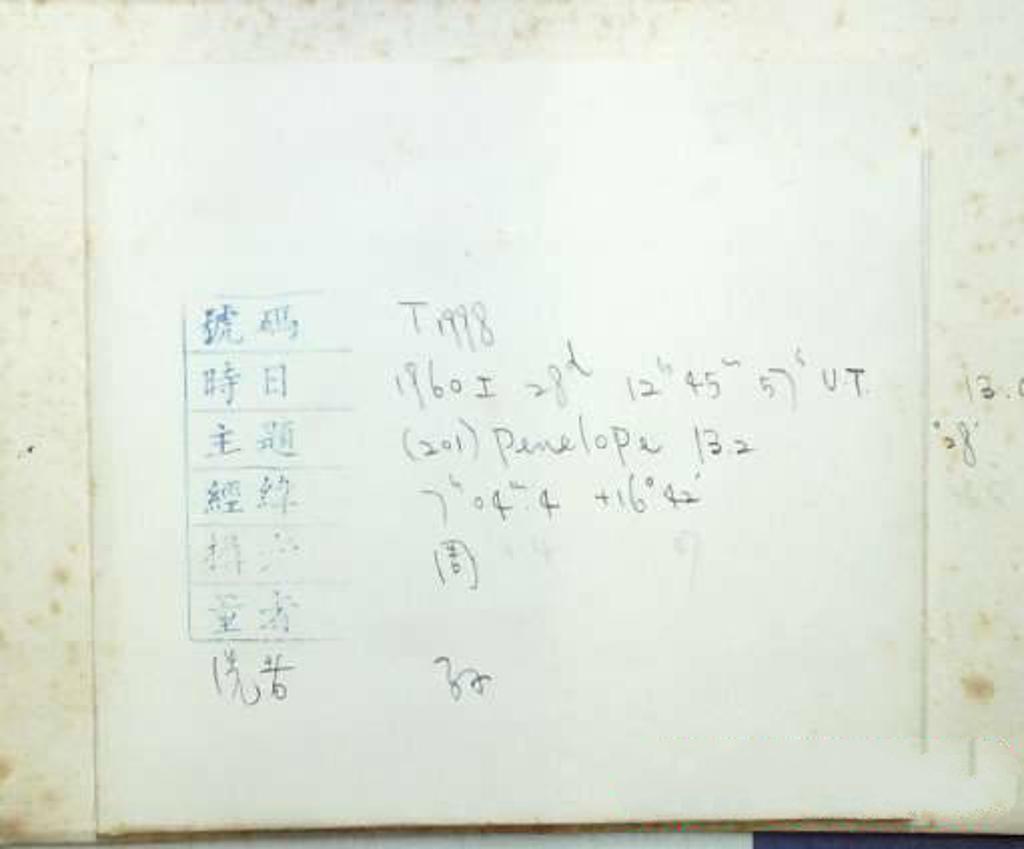 號碼 T1998
時日 1960 I 28ᵈ 12ʰ 45ᵐ 57ˢ U.T. 13.
主題 (201) Penelope 13.2 28
經緯 7ʰ 04ᵐ.4 +16° 42'
攝 周
量者
洗者 孙